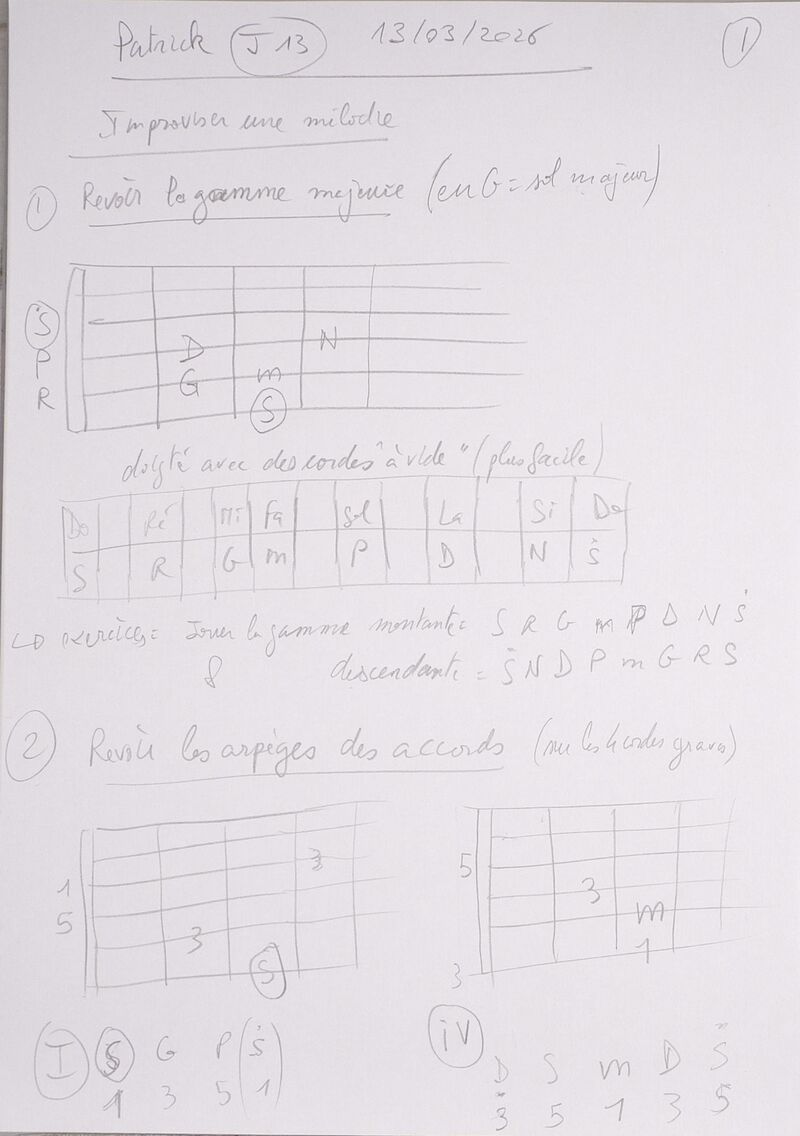 Patrick J 13 13/03/2026 1
Improviser une mélodie
1 Revoir la gamme majeure (en G = sol majeur)
D N
Ṡ
P G m
R S
doigté avec des cordes "à vide" (plus facile)
Do Ré Mi Fa Sol La Si Do
S R G m P D N Ṡ
↳ exercices = Jouer la gamme montante = S R G m P D N Ṡ
& descendante = Ṡ N D P m G R S
2 Revoir les arpèges des accords (sur les 4 cordes graves)
3
1
5 3
S
5
3 m
3 1
I S G P (Ṡ)
1 3 5 1
iv Ḍ S m D S̈
3 5 1 3 5